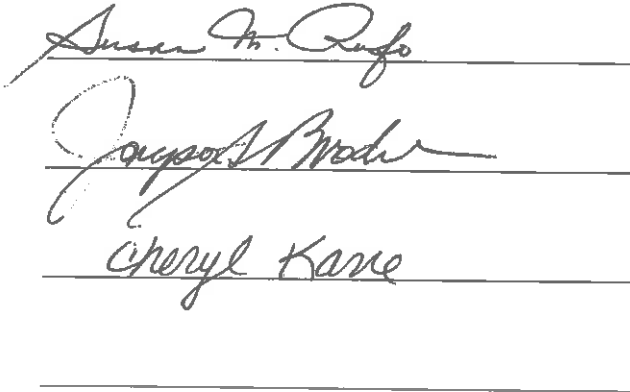 Susan M. Rufo
Jayson S Brodie
Cheryl Kane